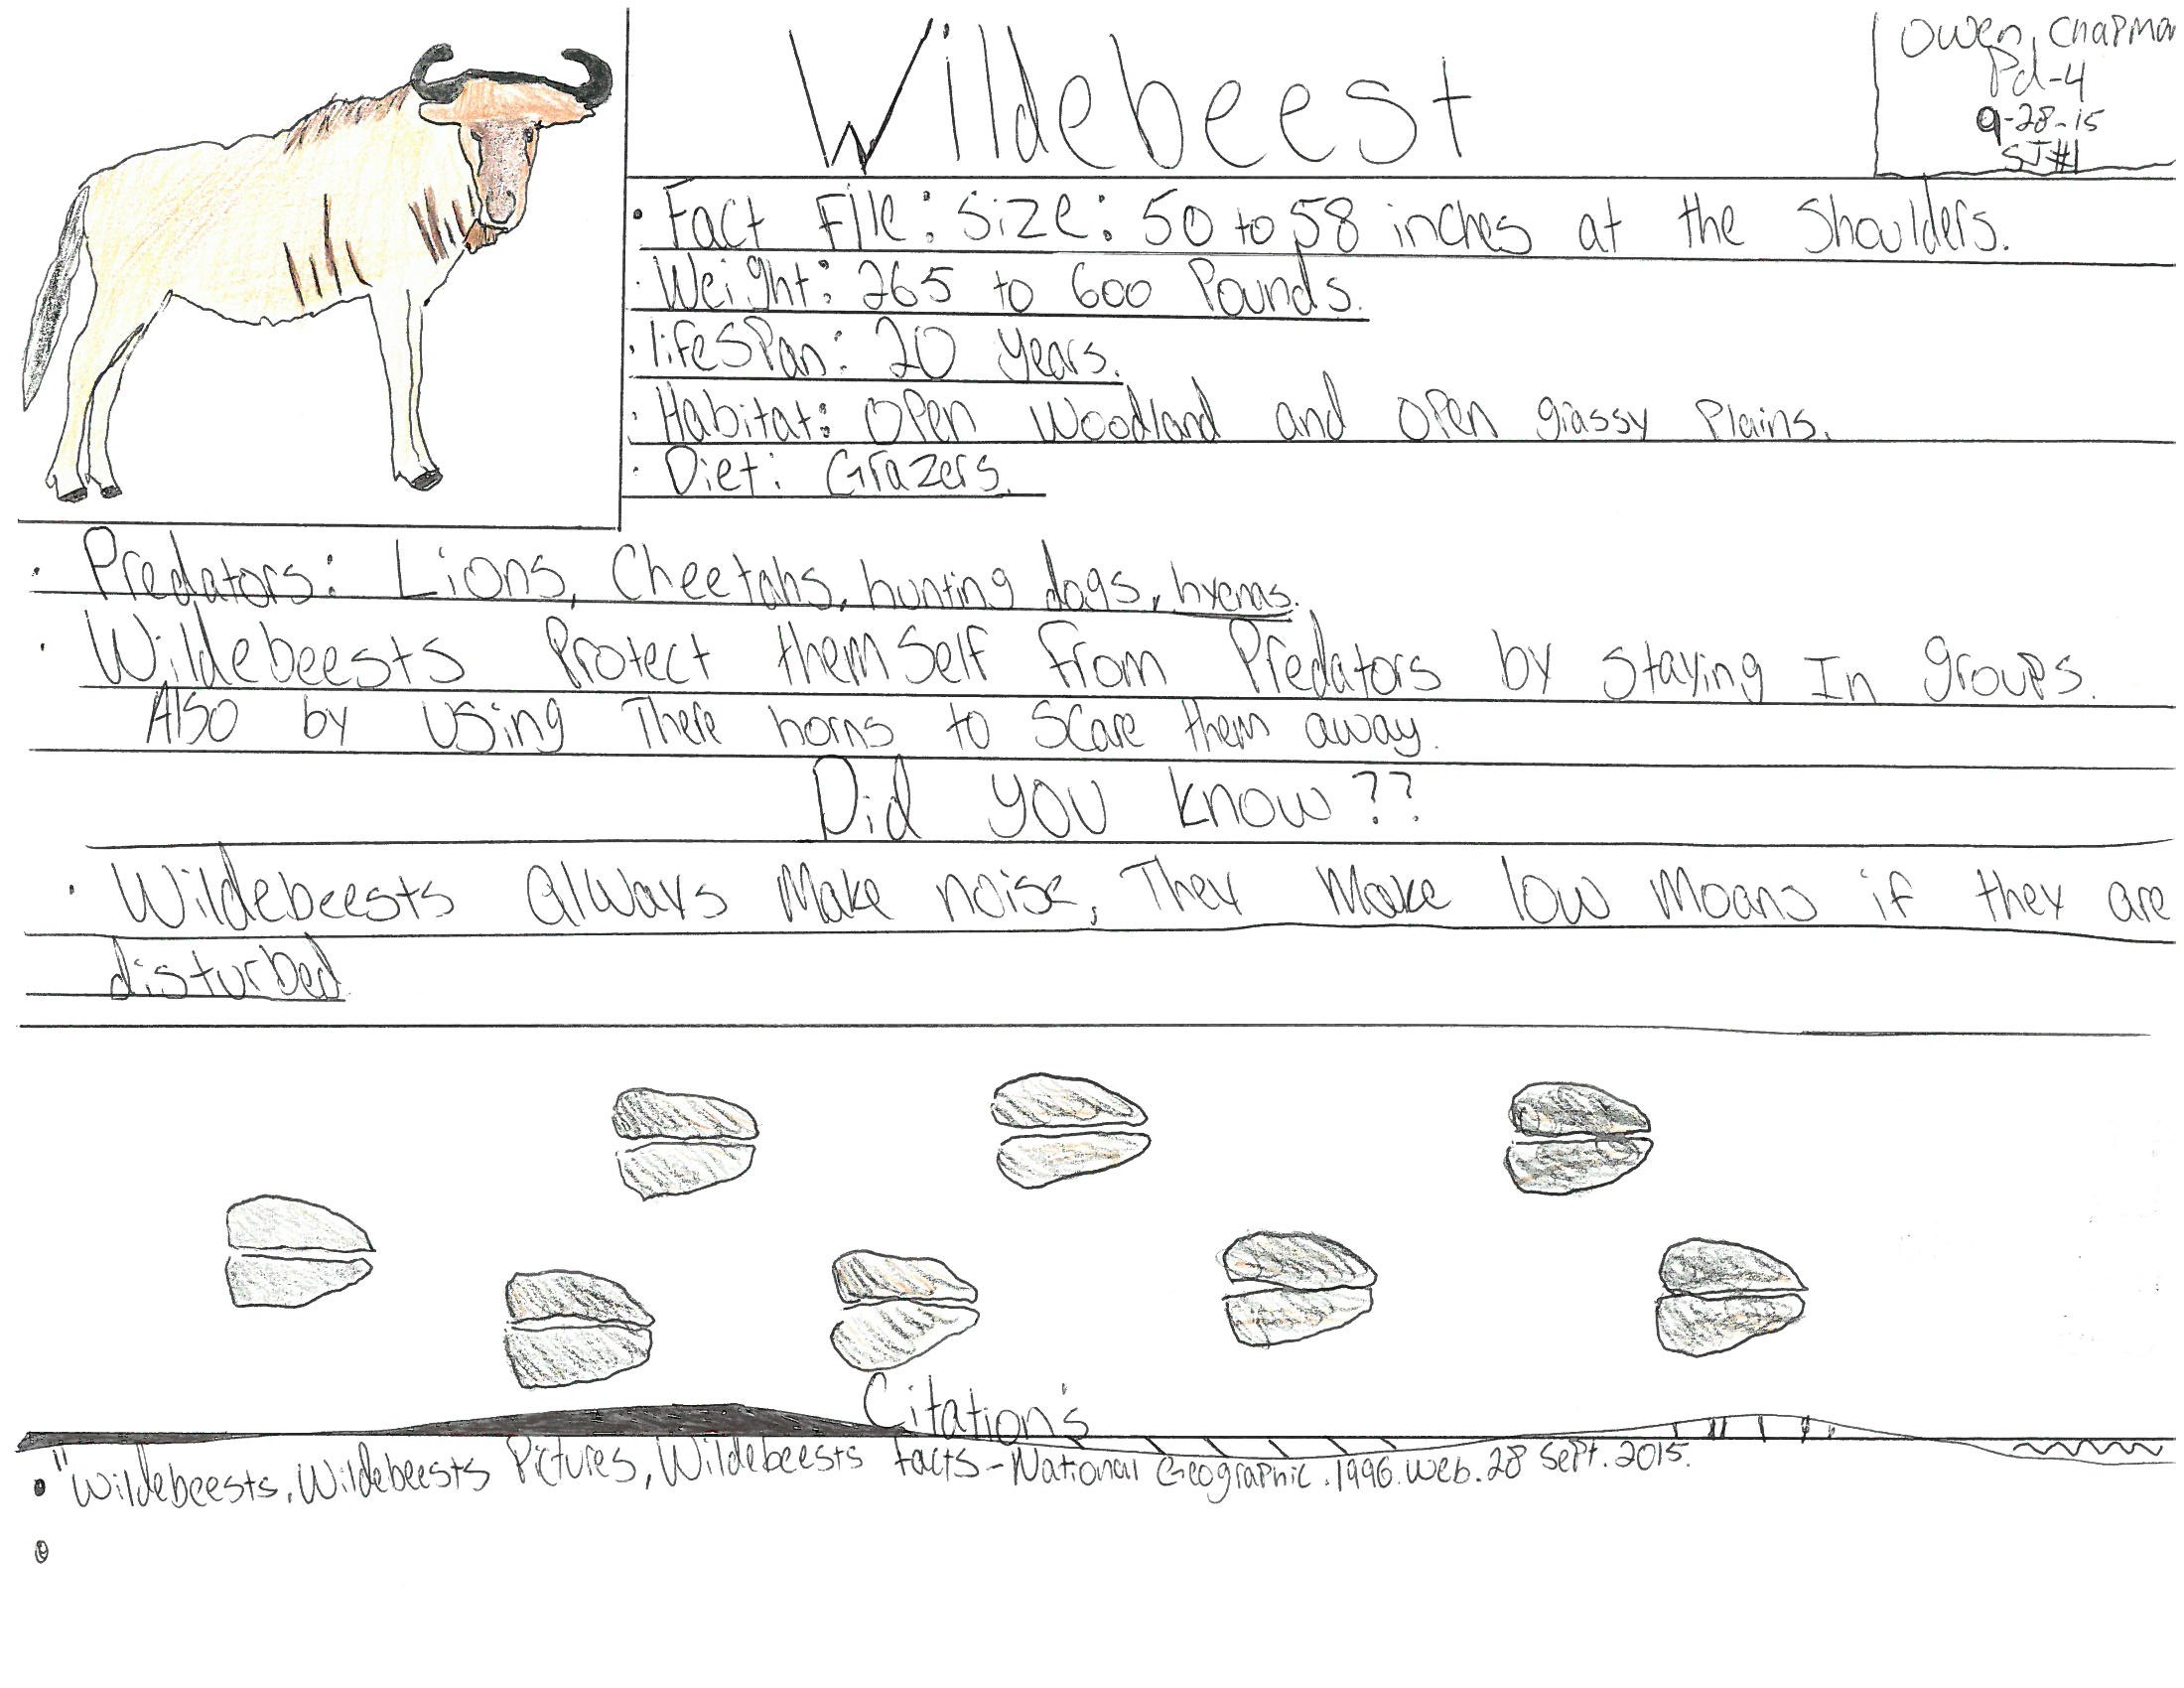 Wildebeest
Owen Chapman
Pd-4
9-28-15
SJ#1
• Fact File: Size: 50 to 58 inches at the Shoulders.
• Weight: 265 to 600 Pounds.
• lifeSpan: 20 years.
• Habitat: Open Woodland and open grassy Plains.
• Diet: Grazers.
• Predators: Lions, Cheetahs, hunting dogs, hyenas.
• Wildebeests Protect themself from Predators by staying In groups.
Also by using There horns to scare them away.
Did you know??
• Wildebeests always Make noise, They Make low Moans if they are
disturbed
Citation's
• "Wildebeests, Wildebeests Pictures, Wildebeests facts - National Geographic. 1996. Web. 28 Sept. 2015.
•